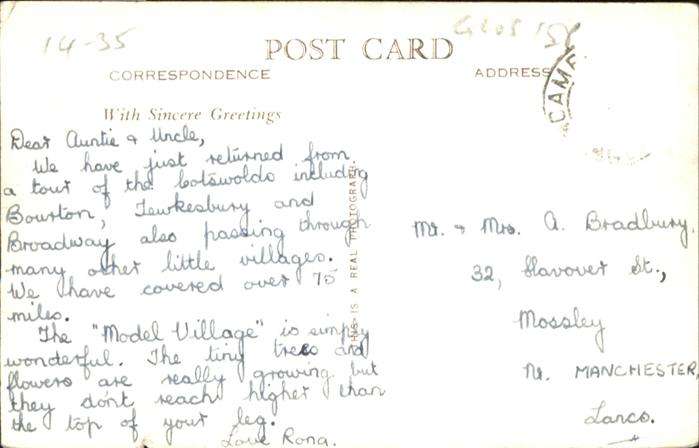 14-35
Glos 15/-
POST CARD
CORRESPONDENCE
ADDRESS
CAMP
With Sincere Greetings
Dear Auntie & Uncle,
We have just returned from
a tour of the Cotswolds including
Bourton, Tewkesbury and
Broadway also passing through
many other little villages.
We have covered over 75
miles.
The "Model Village" is simply
wonderful. The tiny trees and
flowers are really growing but
they don't reach higher than
the top of your leg.
Love Rona.
THIS IS A REAL PHOTOGRAPH.
Mr. & Mrs. A. Bradbury,
32, St.,
Mossley
Nr. MANCHESTER,
Lancs.